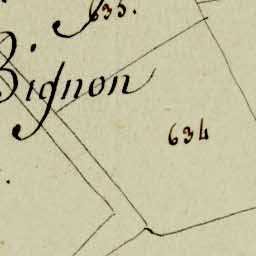 633.
Bignon
634